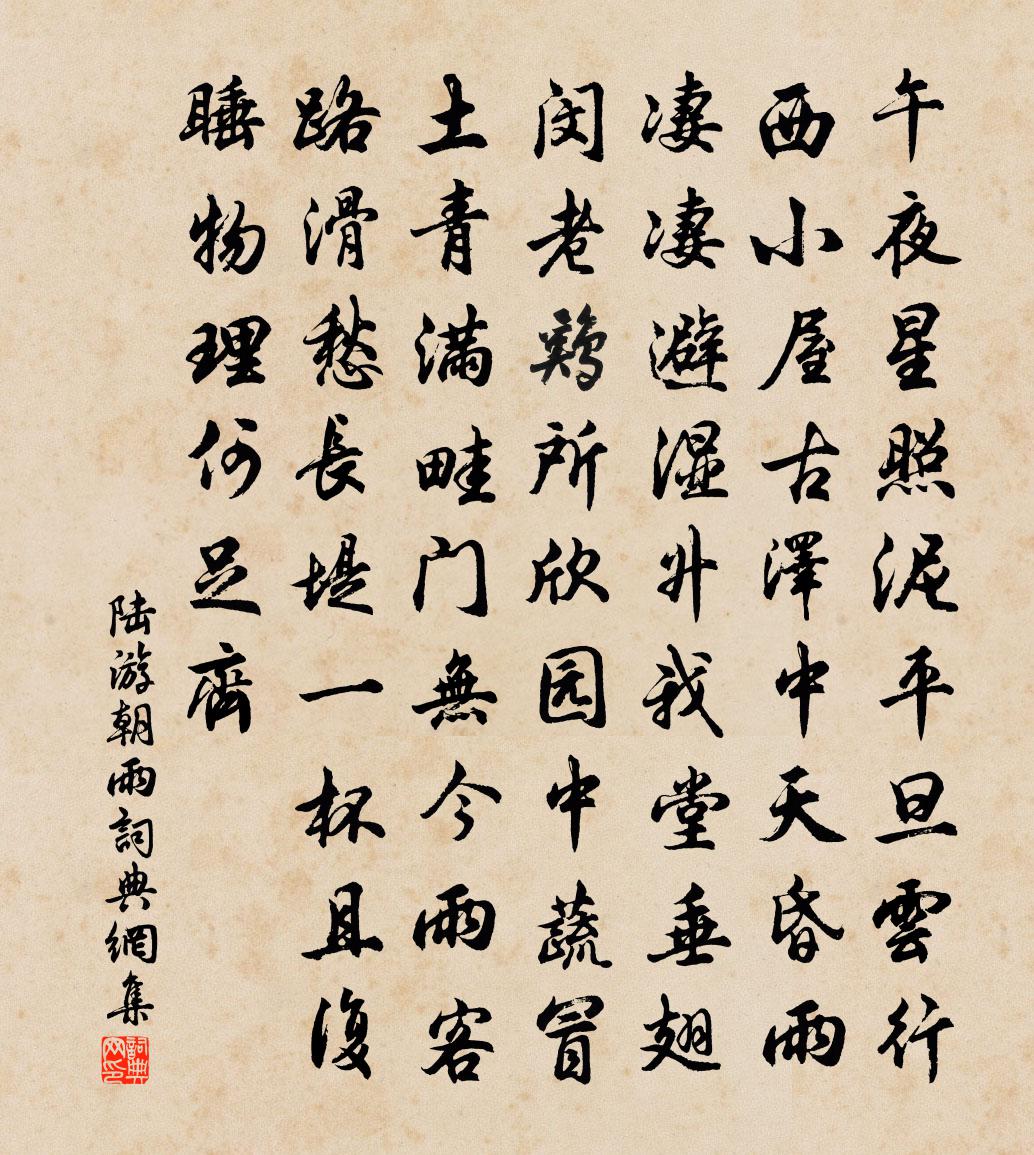 午夜星照泥平旦雲行
西小屋古澤中天昏雨
凄凄避湿升我堂垂翅
闵老鶏所欣园中蔬冒
土青满畦门無今雨客
路滑愁長堤一杯且復
睡物理何足齊
陆游朝雨詞典網集
詞典网印